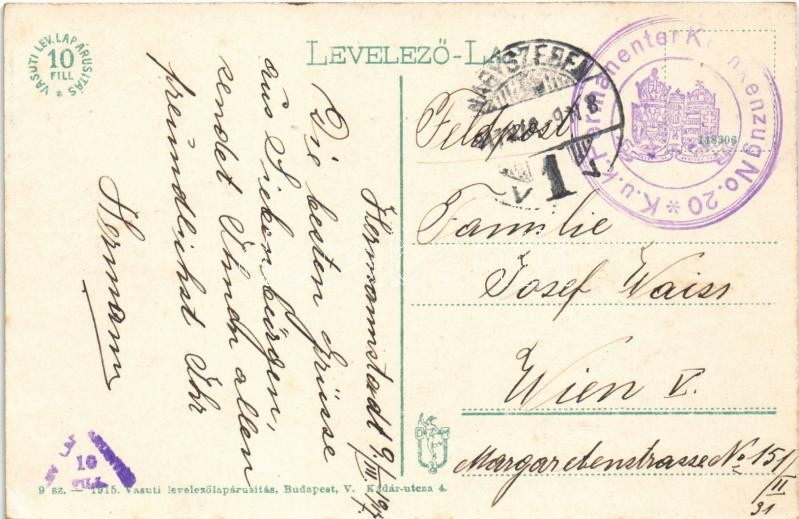 VASUTI LEV. LAP ÁRUSITÁS *
10
FILL
LEVELEZŐ-LAP
NAGYSZEBEN
1
K.u.k. Permanenter Krankenzug No. 20 *
148306
Feldpost
Hermannstadt 9./III
Die besten Grüsse
aus Siebenbürgen,
sendet Ihnen allen
freundlichst Ihr
Hermann
Familie
Josef Waiss
Wien V.
Margaretenstrasse No 151/II
31
10
FILL
9 sz. — 1915. Vasuti levelezőlapárusitás, Budapest, V. Kádár-utcza 4.